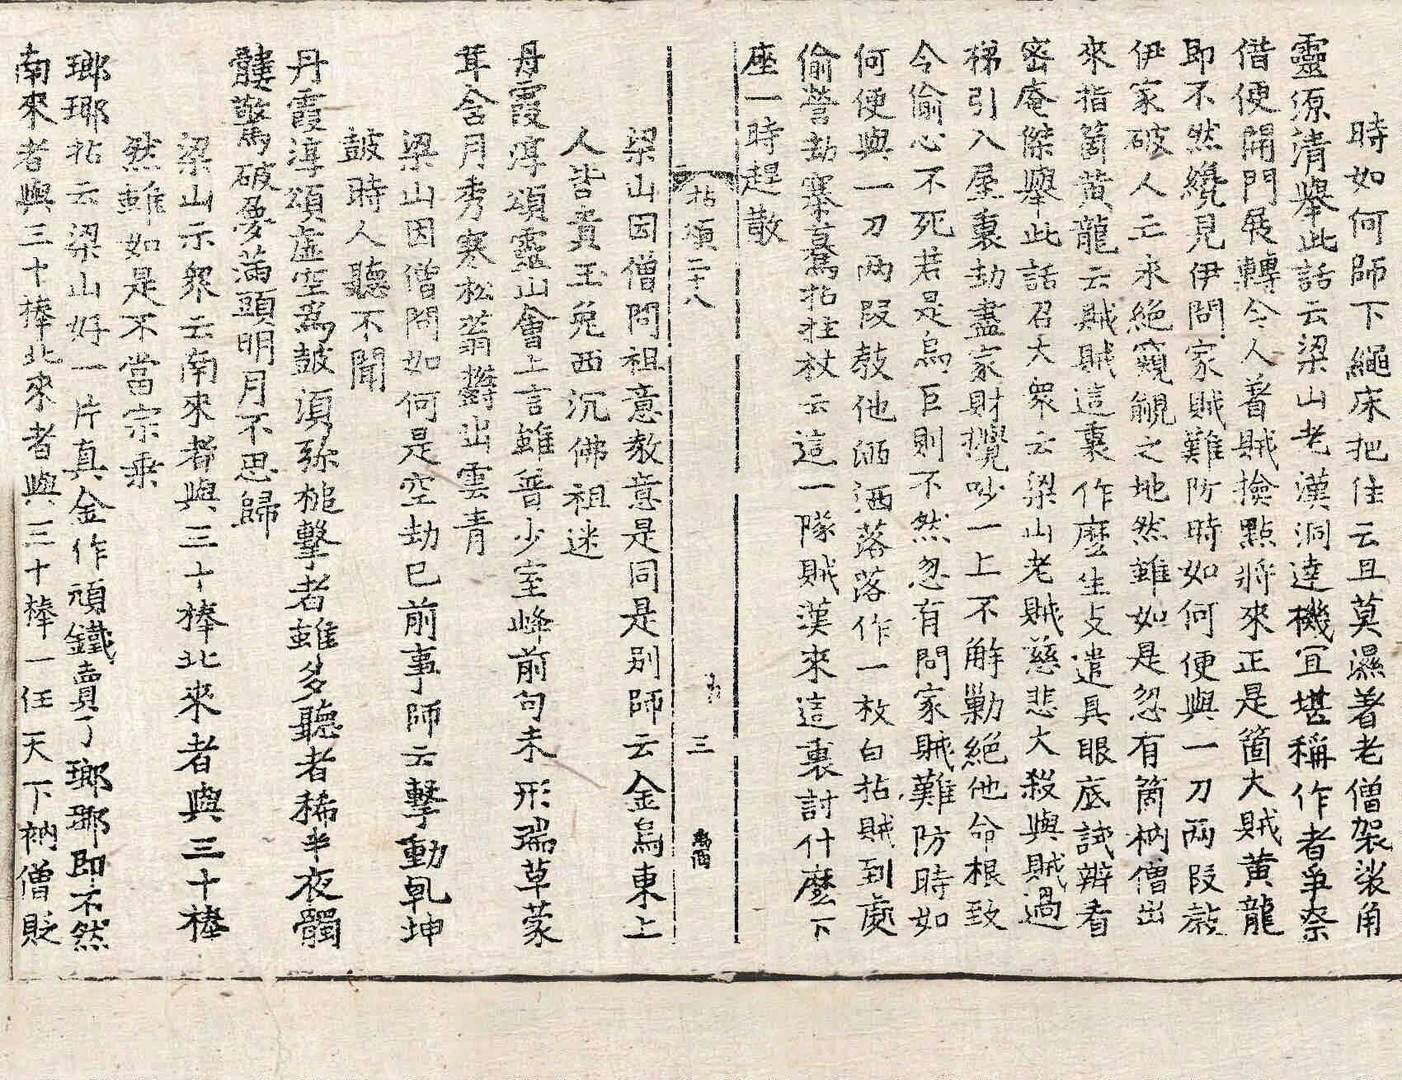 時如何師下繩床把住云且莫濕著老僧袈裟角
靈源清舉此話云梁山老漢洞達機宜堪稱作者爭奈
借便開門展轉令人著賊撿點將來正是箇大賊黃龍
即不然纔見伊問家賊難防時如何便與一刀兩段敎
伊家破人亡永絕窺覦之地然雖如是忽有箇衲僧出
來指箇黃龍云賊賊這裏作麼生支遣具眼底試辨看
密庵傑舉此話召大衆云梁山老賊慈悲大殺與賊過
梯引入屋裏劫盡家財攪吵一上不解勦絕他命根致
令偷心不死若是烏巨則不然忽有問家賊難防時如
何便與一刀兩段敎他洒洒落落作一枚白拈賊到處
偷營劫寨驀拈拄杖云這一隊賊漢來這裏討什麼下
座一時趕散
拈頌二十八
三
梁山因僧問祖意教意是同是別師云金烏東上
人皆貴玉兔西沉佛祖迷
丹霞淳頌靈山會上言雖普少室峰前句未形瑞草蒙
茸含月秀寒松蓊鬱出雲青
梁山因僧問如何是空劫已前事師云擊動乹坤
皷時人聽不聞
丹霞淳頌虛空爲皷須弥槌擊者雖多聽者稀半夜髑
髏驚破夢滿頭明月不思歸
梁山示衆云南來者與三十棒北來者與三十棒
然雖如是不當宗乘
瑯琊拈云梁山好一片真金作頑鐵賣了瑯琊即不然
南來者與三十棒北來者與三十棒一任天下衲僧貶